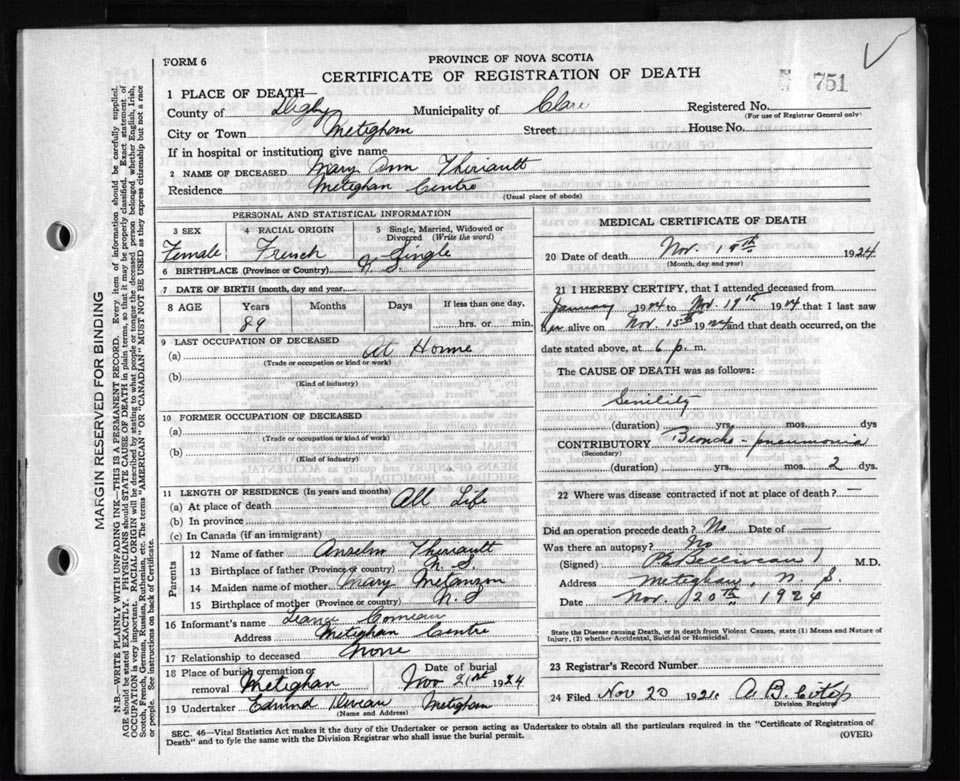 FORM 6
PROVINCE OF NOVA SCOTIA
CERTIFICATE OF REGISTRATION OF DEATH
751
1 PLACE OF DEATH—
County of Digby Municipality of Clare Registered No.
(For use of Registrar General only)
City or Town Metighan Street House No.
If in hospital or institution, give name
2 NAME OF DECEASED Mary Ann Theriault
Residence Metighan Centre
(Usual place of abode)
PERSONAL AND STATISTICAL INFORMATION
3 SEX
Female
4 RACIAL ORIGIN
French
5 Single, Married, Widowed or Divorced (Write the word)
Single
6 BIRTHPLACE (Province or Country) N. S.
7 DATE OF BIRTH (month, day and year)
8 AGE Years Months Days If less than one day,
89 hrs. or min.
9 LAST OCCUPATION OF DECEASED
(a) At Home
(Trade or occupation or kind of work)
(b)
(Kind of industry)
10 FORMER OCCUPATION OF DECEASED
(a)
(Trade or occupation or kind of work)
(b)
(Kind of industry)
11 LENGTH OF RESIDENCE (In years and months)
(a) At place of death All Life
(b) In province
(c) In Canada (if an immigrant)
Parents
12 Name of father Anselm Theriault
13 Birthplace of father (Province or country) N. S.
14 Maiden name of mother Mary Melanson
15 Birthplace of mother (Province or country) N. S
16 Informant's name Comeau
Address Metighan Centre
17 Relationship to deceased None
18 Place of burial cremation or removal Metighan
Date of burial
Nov 21st 1924
19 Undertaker Edmund Deveau Metighan
(Name and Address)
MEDICAL CERTIFICATE OF DEATH
20 Date of death Nov. 19th 1924
(Month, day and year)
21 I HEREBY CERTIFY, that I attended deceased from
January 1924 to Nov. 19th 1924 that I last saw
her alive on Nov. 15th 1924 and that death occurred, on the
date stated above, at 6 p. m.
The CAUSE OF DEATH was as follows:
Senility
(duration) yrs. mos. dys
CONTRIBUTORY Broncho-pneumonia
(Secondary)
(duration) yrs. mos. 2 dys.
22 Where was disease contracted if not at place of death? —
Did an operation precede death? No Date of —
Was there an autopsy? No
(Signed) Belliveau M.D.
Address Metighan, N. S.
Date Nov. 20th 1924
State the Disease causing Death, or in death from Violent Causes, state (1) Means and Nature of
Injury, (2) whether Accidental, Suicidal or Homicidal.
23 Registrar's Record Number
24 Filed Nov 20 192
Division Registrar
SEC. 46—Vital Statistics Act makes it the duty of the Undertaker or person acting as Undertaker to obtain all the particulars required in the "Certificate of Registration of
Death" and to fyle the same with the Division Registrar who shall issue the burial permit. (OVER)
MARGIN RESERVED FOR BINDING
N.B.—WRITE PLAINLY WITH UNFADING INK—THIS IS A PERMANENT RECORD. Every item of information should be carefully supplied.
AGE should be stated EXACTLY. PHYSICIANS should STATE CAUSE OF DEATH in plain terms, so that it may be properly classified. Exact statement of
OCCUPATION is very important. RACIAL ORIGIN will be described by stating to what people or tongue the deceased person belonged whether English, Irish,
Scotch, French, German, Russian, Ruthenian, etc. The terms "AMERICAN" OR "CANADIAN" MUST NOT BE USED as they express citizenship but not a race
or people. See instructions on back of Certificate.